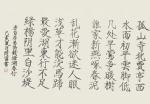 孤山寺北賈亭西
水面初平雲腳低
几處早鶯爭暖樹
誰家新燕啄春泥
亂花漸欲迷人眼
淺草才能沒馬蹄
最愛湖東行不足
綠楊陰里白沙堤